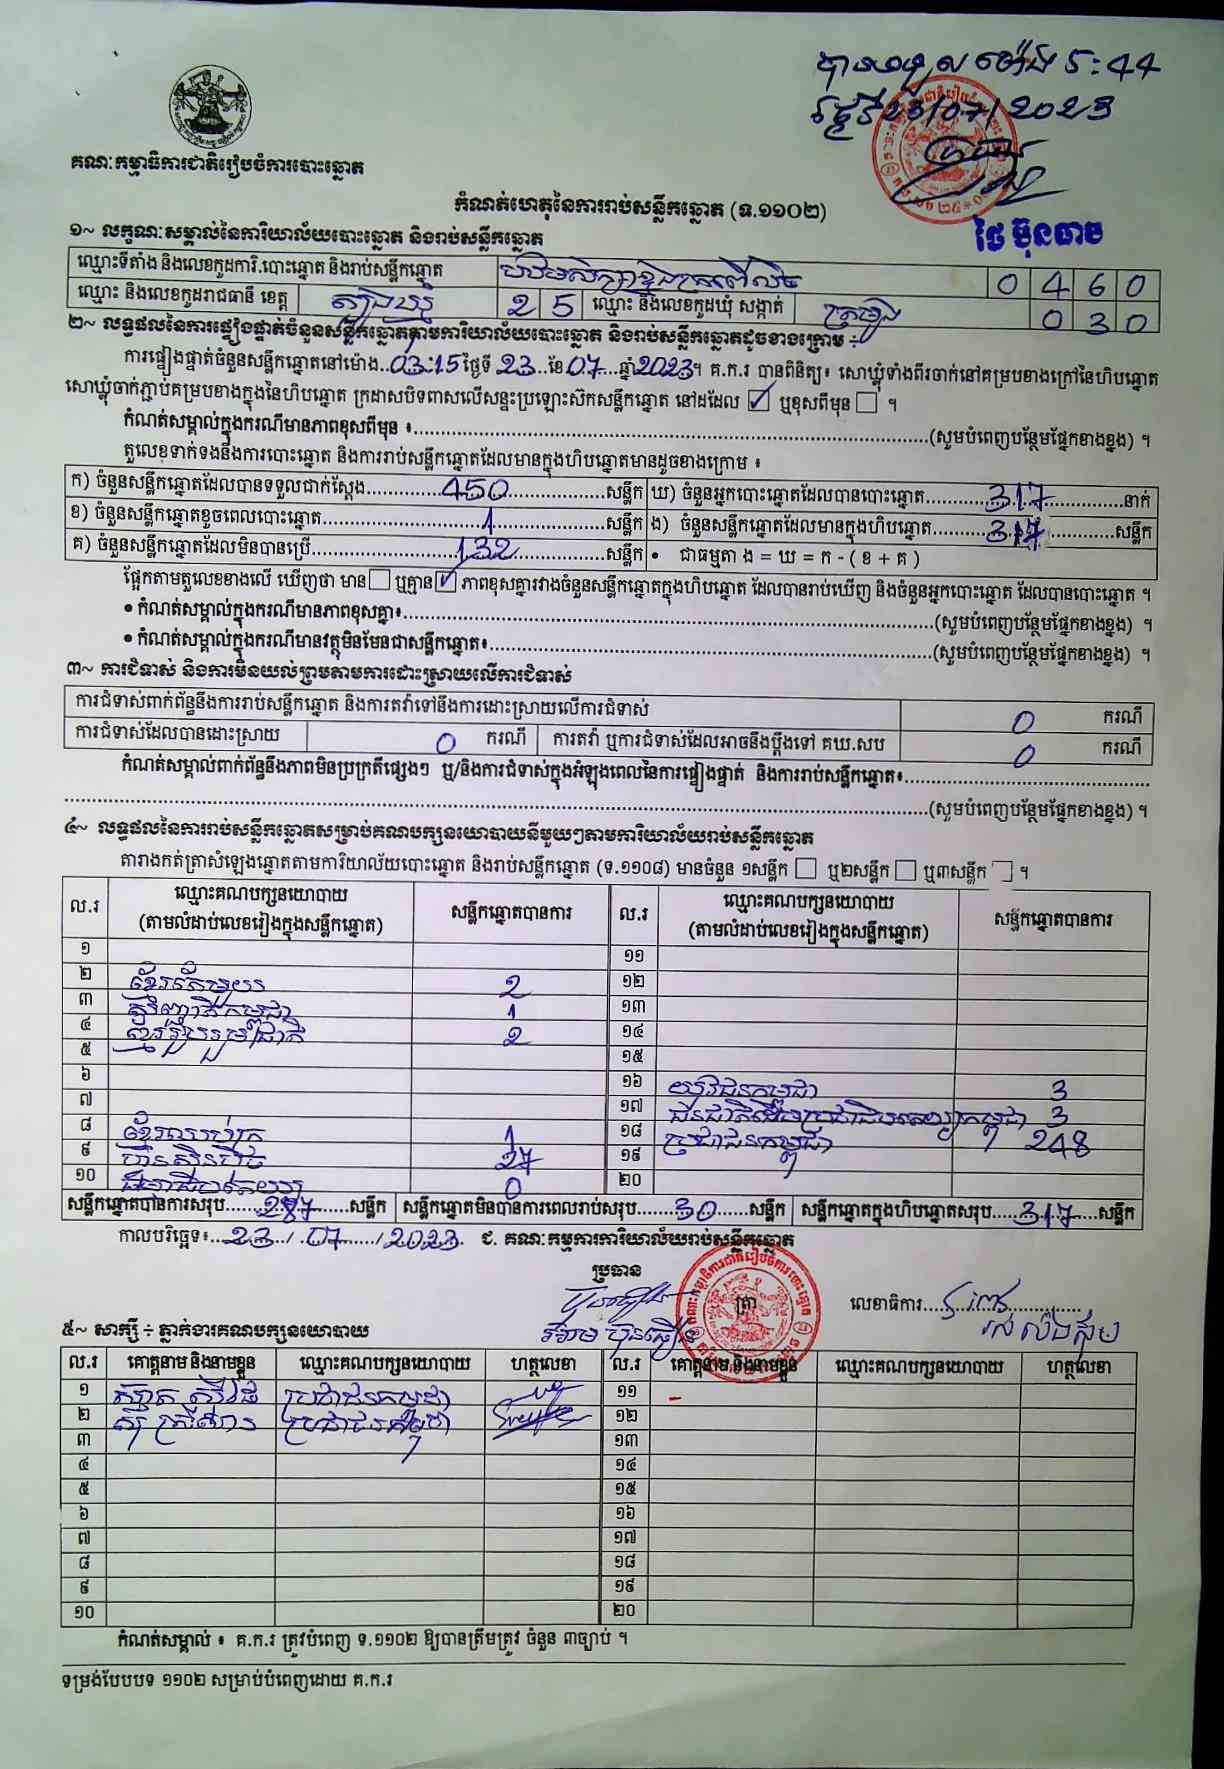 បានទទួល ម៉ោង 5:44
23/07/2023
ថៃ ម៊ុនធាម
គណៈកម្មាធិការជាតិរៀបចំការបោះឆ្នោត
កំណត់ហេតុនៃការរាប់សន្លឹកឆ្នោត (ទ.១១០២)
១~ លក្ខណៈសម្គាល់នៃការិយាល័យបោះឆ្នោត និងរាប់សន្លឹកឆ្នោត
ឈ្មោះទីតាំង និងលេខកូដការិ.បោះឆ្នោត និងរាប់សន្លឹកឆ្នោត 0 4 6 0
ឈ្មោះ និងលេខកូដរាជធានី ខេត្ត ត្បូងឃ្មុំ 2 5 ឈ្មោះ និងលេខកូដឃុំ សង្កាត់ 0 3 0
២~ លទ្ធផលនៃការផ្ទៀងផ្ទាត់ចំនួនសន្លឹកឆ្នោតតាមការិយាល័យបោះឆ្នោត និងរាប់សន្លឹកឆ្នោតដូចខាងក្រោម ÷
ការផ្ទៀងផ្ទាត់ចំនួនសន្លឹកឆ្នោតនៅម៉ោង..03:15 ថ្ងៃទី 23 ...ខែ 07 ...ឆ្នាំ 2023។ គ.ក.រ បានពិនិត្យ៖ សោឃ្លុំទាំងពីរចាក់នៅគម្របខាងក្រៅនៃហិបឆ្នោត
សោឃ្លុំចាក់ភ្ជាប់គម្របខាងក្នុងនៃហិបឆ្នោត ក្រដាសបិទពាសលើសន្ទះប្រឡោះស៊កសន្លឹកឆ្នោត នៅដដែល ☑ ឬខុសពីមុន ☐ ។
កំណត់សម្គាល់ក្នុងករណីមានភាពខុសពីមុន ៖......(សូមបំពេញបន្ថែមផ្នែកខាងខ្នង) ។
តួលេខទាក់ទងនឹងការបោះឆ្នោត និងការរាប់សន្លឹកឆ្នោតដែលមានក្នុងហិបឆ្នោតមានដូចខាងក្រោម ៖
ក) ចំនួនសន្លឹកឆ្នោតដែលបានទទួលជាក់ស្តែង......450......សន្លឹក ឃ) ចំនួនអ្នកបោះឆ្នោតដែលបានបោះឆ្នោត......317......នាក់
ខ) ចំនួនសន្លឹកឆ្នោតខូចពេលបោះឆ្នោត......1......សន្លឹក ង) ចំនួនសន្លឹកឆ្នោតដែលមានក្នុងហិបឆ្នោត......317......សន្លឹក
គ) ចំនួនសន្លឹកឆ្នោតដែលមិនបានប្រើ......132......សន្លឹក • ជាធម្មតា ង = ឃ = ក - ( ខ + គ )
ផ្អែកតាមតួលេខខាងលើ ឃើញថា មាន ☐ ឬគ្មាន ☑ ភាពខុសគ្នារវាងចំនួនសន្លឹកឆ្នោតក្នុងហិបឆ្នោត ដែលបានរាប់ឃើញ និងចំនួនអ្នកបោះឆ្នោត ដែលបានបោះឆ្នោត ។
• កំណត់សម្គាល់ក្នុងករណីមានភាពខុសគ្នា៖......(សូមបំពេញបន្ថែមផ្នែកខាងខ្នង) ។
• កំណត់សម្គាល់ក្នុងករណីមានវត្ថុមិនមែនជាសន្លឹកឆ្នោត៖......(សូមបំពេញបន្ថែមផ្នែកខាងខ្នង) ។
៣~ ការជំទាស់ និងការមិនយល់ព្រមតាមការដោះស្រាយលើការជំទាស់
ការជំទាស់ពាក់ព័ន្ធនឹងការរាប់សន្លឹកឆ្នោត និងការតវ៉ាទៅនឹងការដោះស្រាយលើការជំទាស់ 0 ករណី
ការជំទាស់ដែលបានដោះស្រាយ 0 ករណី ការតវ៉ា ឬការជំទាស់ដែលអាចនឹងប្តឹងទៅ គឃ.សប 0 ករណី
កំណត់សម្គាល់ពាក់ព័ន្ធនឹងភាពមិនប្រក្រតីផ្សេងៗ ឬ/និងការជំទាស់ក្នុងអំឡុងពេលនៃការផ្ទៀងផ្ទាត់ និងការរាប់សន្លឹកឆ្នោត៖......
......(សូមបំពេញបន្ថែមផ្នែកខាងខ្នង) ។
៤~ លទ្ធផលនៃការរាប់សន្លឹកឆ្នោតសម្រាប់គណបក្សនយោបាយនីមួយៗតាមការិយាល័យរាប់សន្លឹកឆ្នោត
តារាងកត់ត្រាសំឡេងឆ្នោតតាមការិយាល័យបោះឆ្នោត និងរាប់សន្លឹកឆ្នោត (ទ.១១០៨) មានចំនួន ១សន្លឹក ☐ ឬ២សន្លឹក ☐ ឬ៣សន្លឹក ☐ ។
ល.រ ឈ្មោះគណបក្សនយោបាយ (តាមលំដាប់លេខរៀងក្នុងសន្លឹកឆ្នោត) សន្លឹកឆ្នោតបានការ ល.រ ឈ្មោះគណបក្សនយោបាយ (តាមលំដាប់លេខរៀងក្នុងសន្លឹកឆ្នោត) សន្លឹកឆ្នោតបានការ
១ ១១
២ ខ្មែរតែមួយ 2 ១២
៣ 1 ១៣
៤ ខ្មែររួបរួមជាតិ 2 ១៤
៥ ១៥
៦ ១៦ យុវជនកម្ពុជា 3
៧ ១៧ 3
៨ 1 ១៨ ប្រជាជនកម្ពុជា 248
៩ ហ៊្វុនស៊ិនប៉ិច 27 ១៩
១០ 0 ២០
សន្លឹកឆ្នោតបានការសរុប......287......សន្លឹក សន្លឹកឆ្នោតមិនបានការពេលរាប់សរុប......30......សន្លឹក សន្លឹកឆ្នោតក្នុងហិបឆ្នោតសរុប......317......សន្លឹក
កាលបរិច្ឆេទ៖...23.../...07.../2023. ជ. គណៈកម្មការការិយាល័យរាប់សន្លឹកឆ្នោត
ប្រធាន
ត្រា
លេខាធិការ......
៥~ សាក្សី ÷ ភ្នាក់ងារគណបក្សនយោបាយ
ល.រ គោត្តនាម និងនាមខ្លួន ឈ្មោះគណបក្សនយោបាយ ហត្ថលេខា ល.រ គោត្តនាម និងនាមខ្លួន ឈ្មោះគណបក្សនយោបាយ ហត្ថលេខា
១ ប្រជាជនកម្ពុជា ១១ -
២ ប្រជាជនកម្ពុជា ១២
៣ ១៣
៤ ១៤
៥ ១៥
៦ ១៦
៧ ១៧
៨ ១៨
៩ ១៩
១០ ២០
កំណត់សម្គាល់ ៖ គ.ក.រ ត្រូវបំពេញ ទ.១១០២ ឱ្យបានត្រឹមត្រូវ ចំនួន ៣ច្បាប់ ។
ទម្រង់បែបបទ ១១០២ សម្រាប់បំពេញដោយ គ.ក.រ